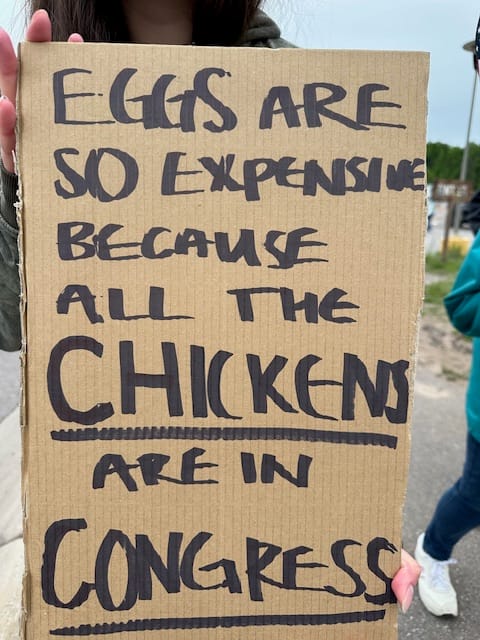 EGGS ARE
SO EXPENSIVE
BECAUSE
ALL THE
CHICKENS
ARE IN
CONGRESS